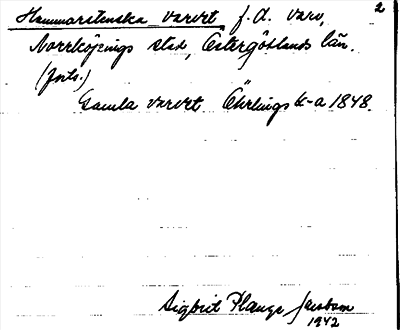 2
Hammarstenska varvet f.d. varv,
Norrköpings stad, Östergötlands län.
(forts.)
Gamla varvet. Öhrlings k-a 1848.
Sigbrit Plænge Jacobson
1942